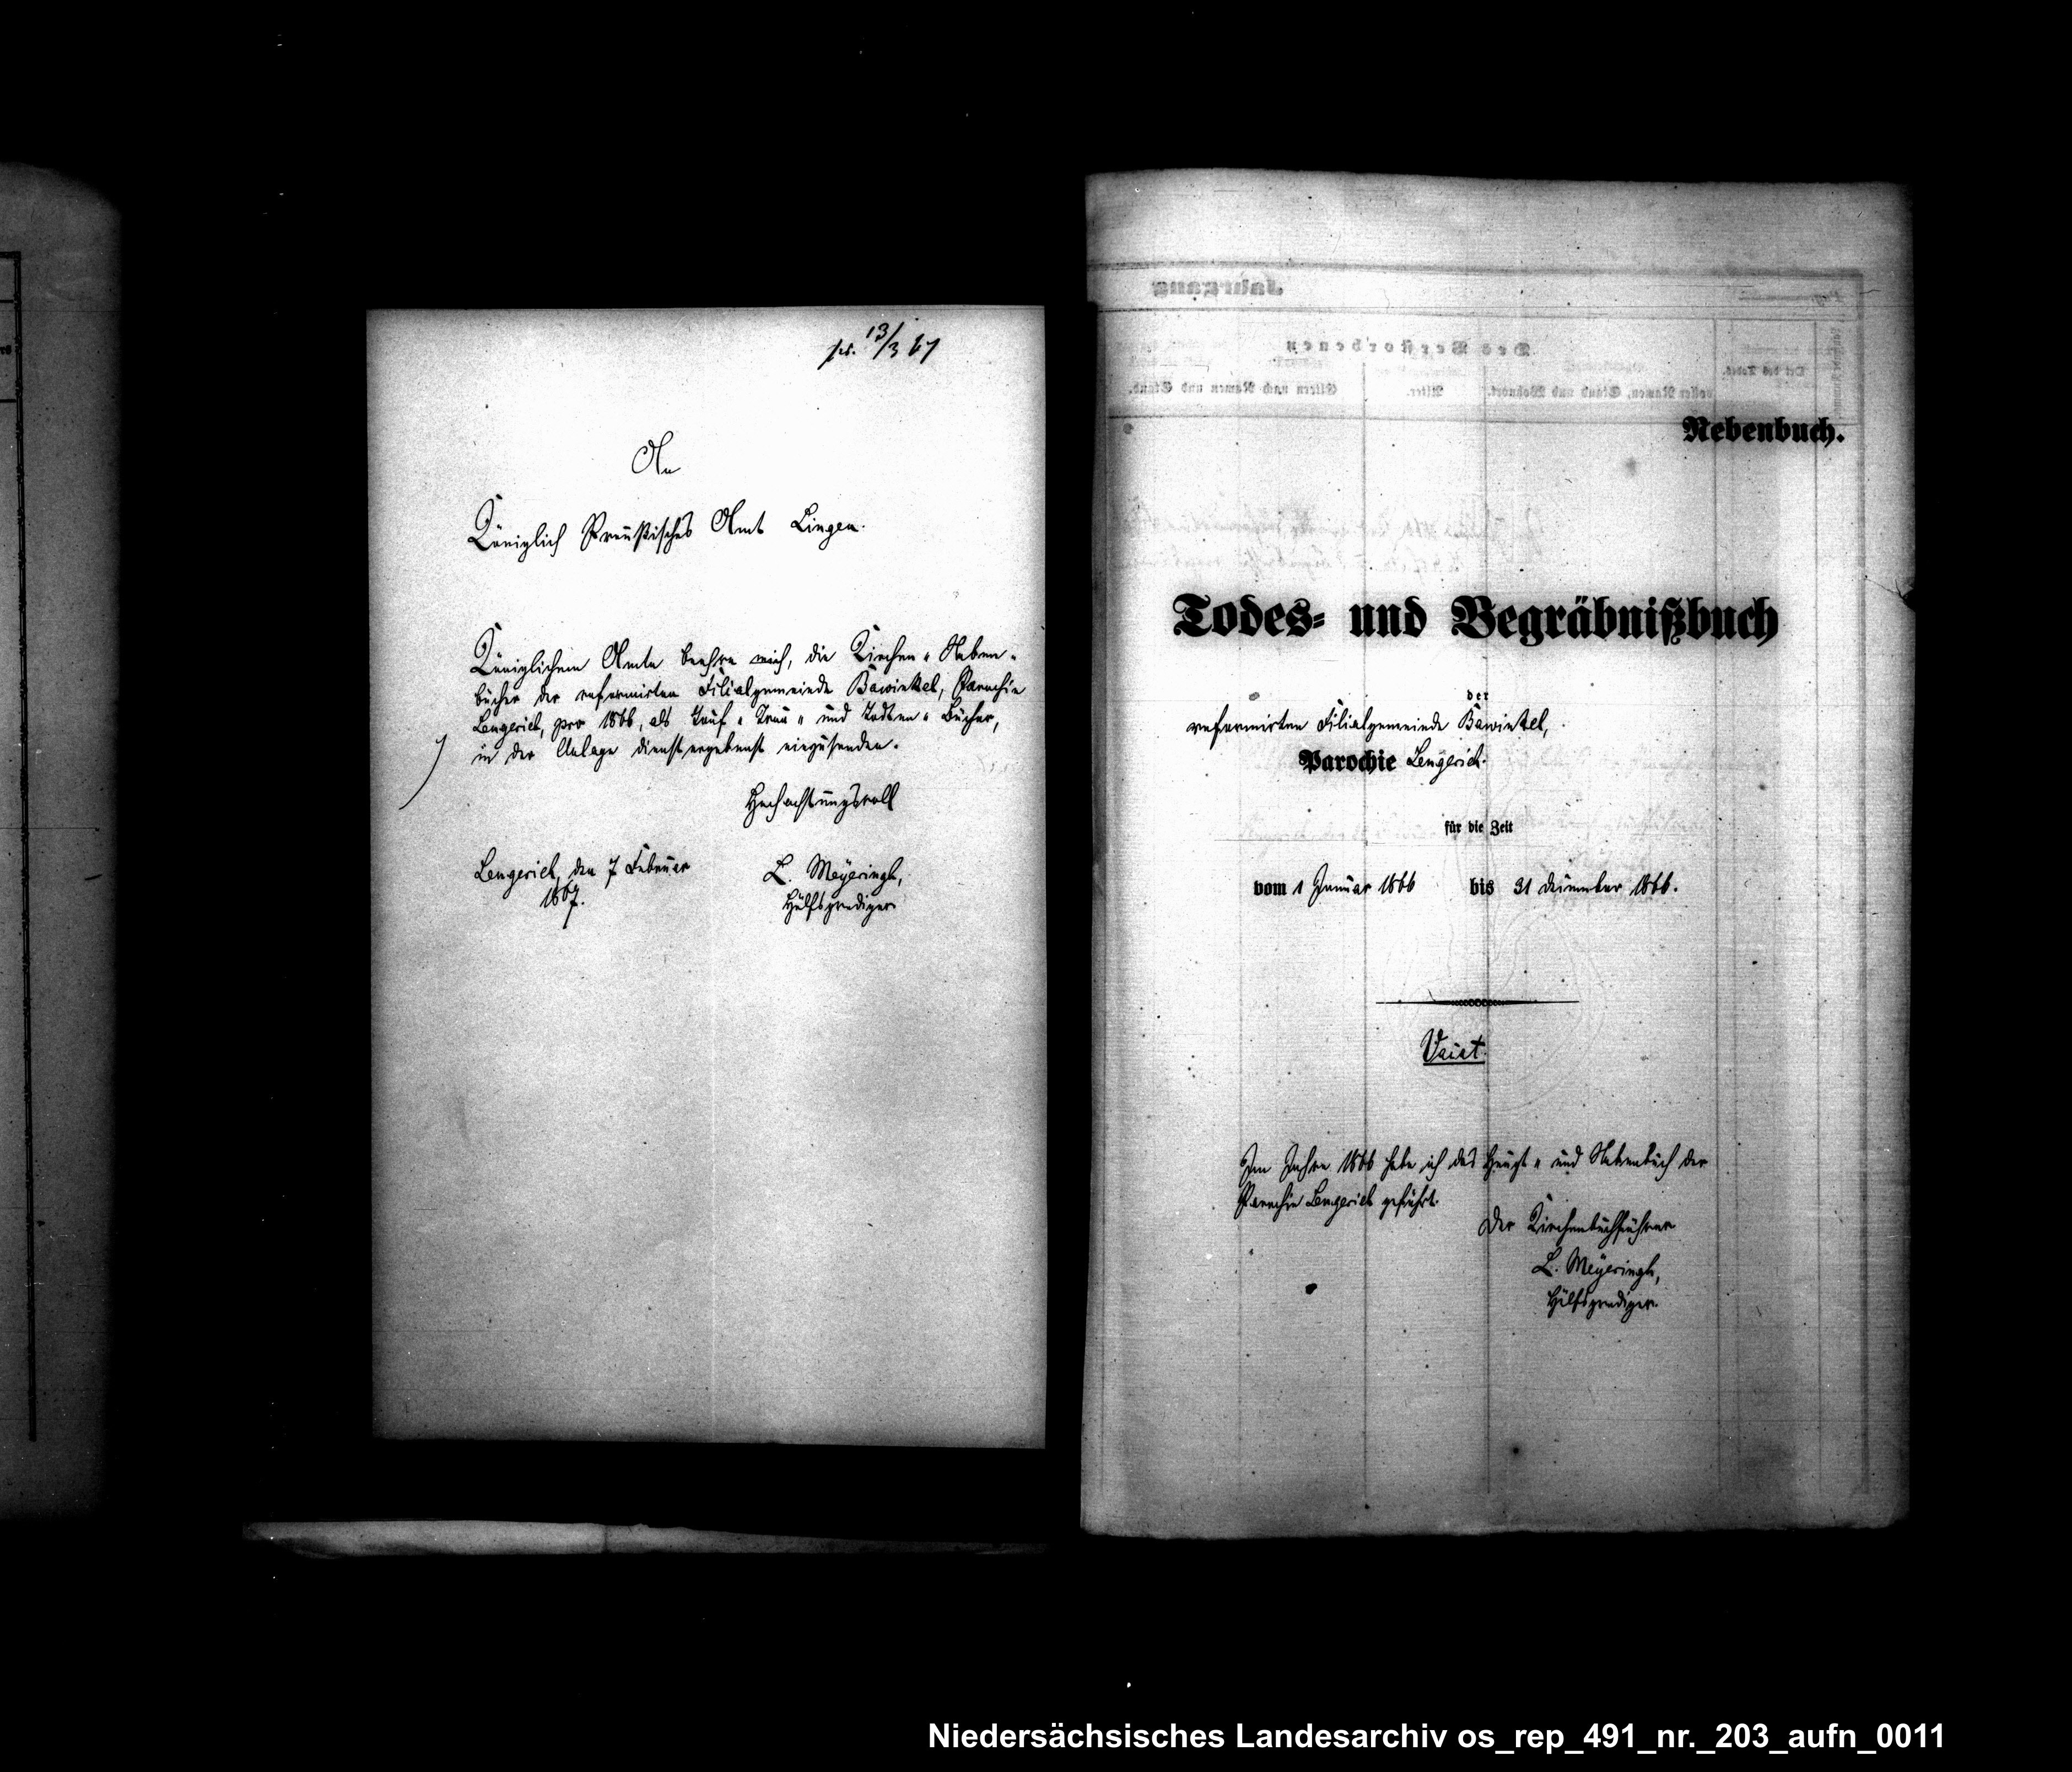 pr. 13/3 67
An
Königlich Preußisches Amt Lingen.
Königlichem Amte beehre mich, die Kirchen-Neben-
bücher der reformirten Filialgemeinde Bawinkel, Parochie
Lengerich, pro 1866, als Tauf- Trau- und Todten-Bücher,
in der Anlage dienstergebenst einzusenden.
Hochachtungsvoll
Lengerich, den 7 Februar
1867.
L. Meÿeringh,
Hülfsprediger
Nebenbuch.
Todes- und Begräbnißbuch
der
reformirten Filialgemeinde Bawinkel,
Parochie Lengerich.
für die Zeit
vom 1 Januar 1866 bis 31 December 1866.
Vacat.
Im Jahre 1866 habe ich das Haupt- und Nebenbuch der
Parochie Lengerich geführt.
Der Kirchenbuchführer
L. Meÿeringh,
Hülfsprediger.
Jahrgang
Des Verstorbenen
Eltern nach Namen und Stand.
Alter.
voller Namen, Stand und Wohnort.
Ort des Todes.
Niedersächsisches Landesarchiv os_rep_491_nr._203_aufn_0011